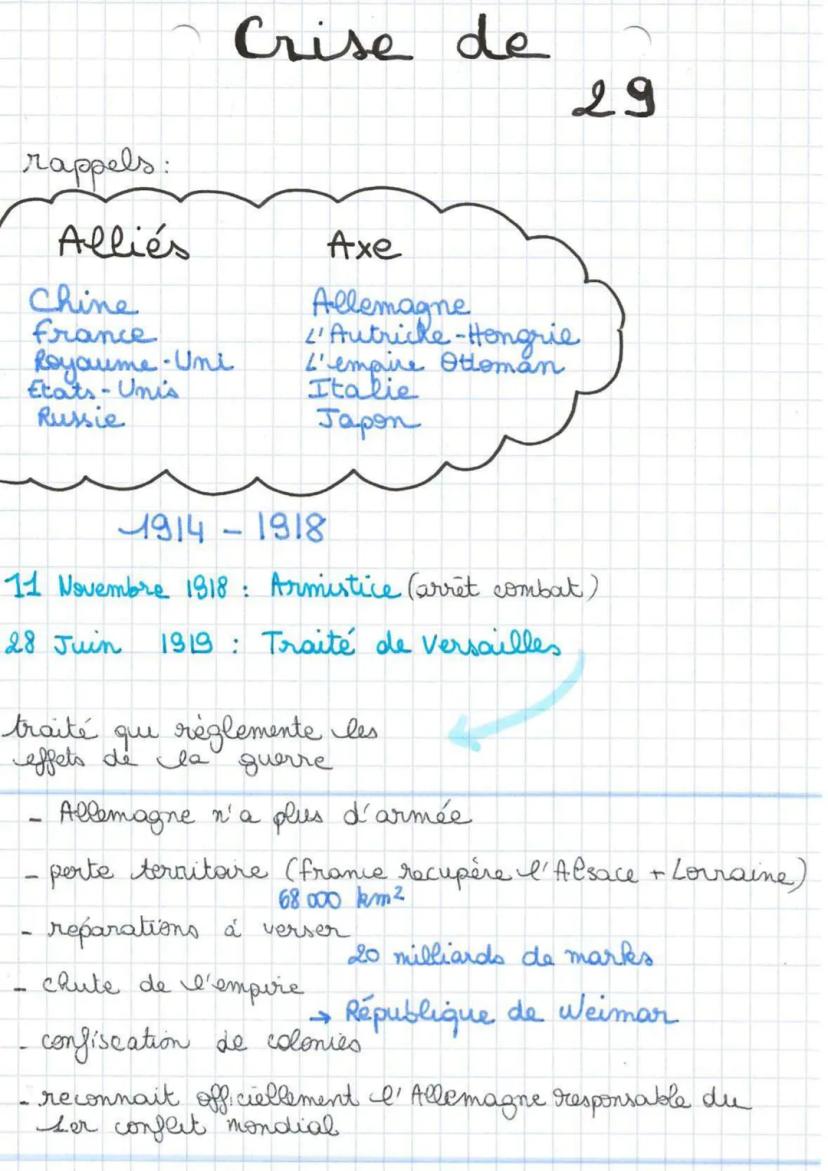 Crise de
29
rappels:
Alliés Axe
Chine Allemagne
France L'Autriche-Hongrie
Royaume-Uni L'empire Ottoman
Etats-Unis Italie
Russie Japon
1914 - 1918
11 Novembre 1918 : Armistice (arrêt combat)
28 Juin 1919 : Traité de Versailles
traité qui règlemente les
effets de la guerre
- Allemagne n'a plus d'armée
- perte territoire (France recupère l'Alsace + Lorraine)
68 000 km²
- reparations à verser
20 milliards de marks
- chute de l'empire
→ République de Weimar
- confiscation de colonies
- reconnait officiellement l'Allemagne responsable du
1er conflit mondial